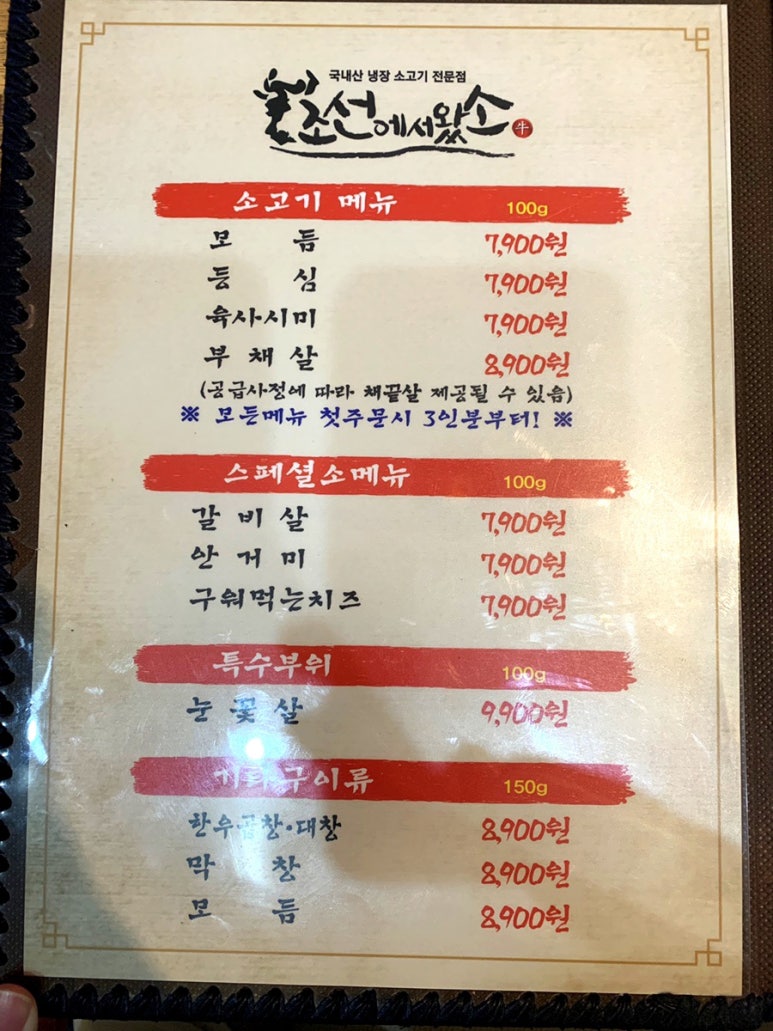 국내산 냉장 소고기 전문점
조선에서왔소
牛
소고기 메뉴 100g
모 듬 7,900원
등 심 7,900원
육사시미 7,900원
부 채 살 8,900원
(공급사정에 따라 채끝살 제공될 수 있음)
※ 모든메뉴 첫주문시 3인분부터! ※
스페셜소메뉴 100g
갈 비 살 7,900원
안 거 미 7,900원
구워먹는치즈 7,900원
특수부위 100g
눈 꽃 살 9,900원
기타구이류 150g
한우곱창·대창 8,900원
막 창 8,900원
모 듬 8,900원